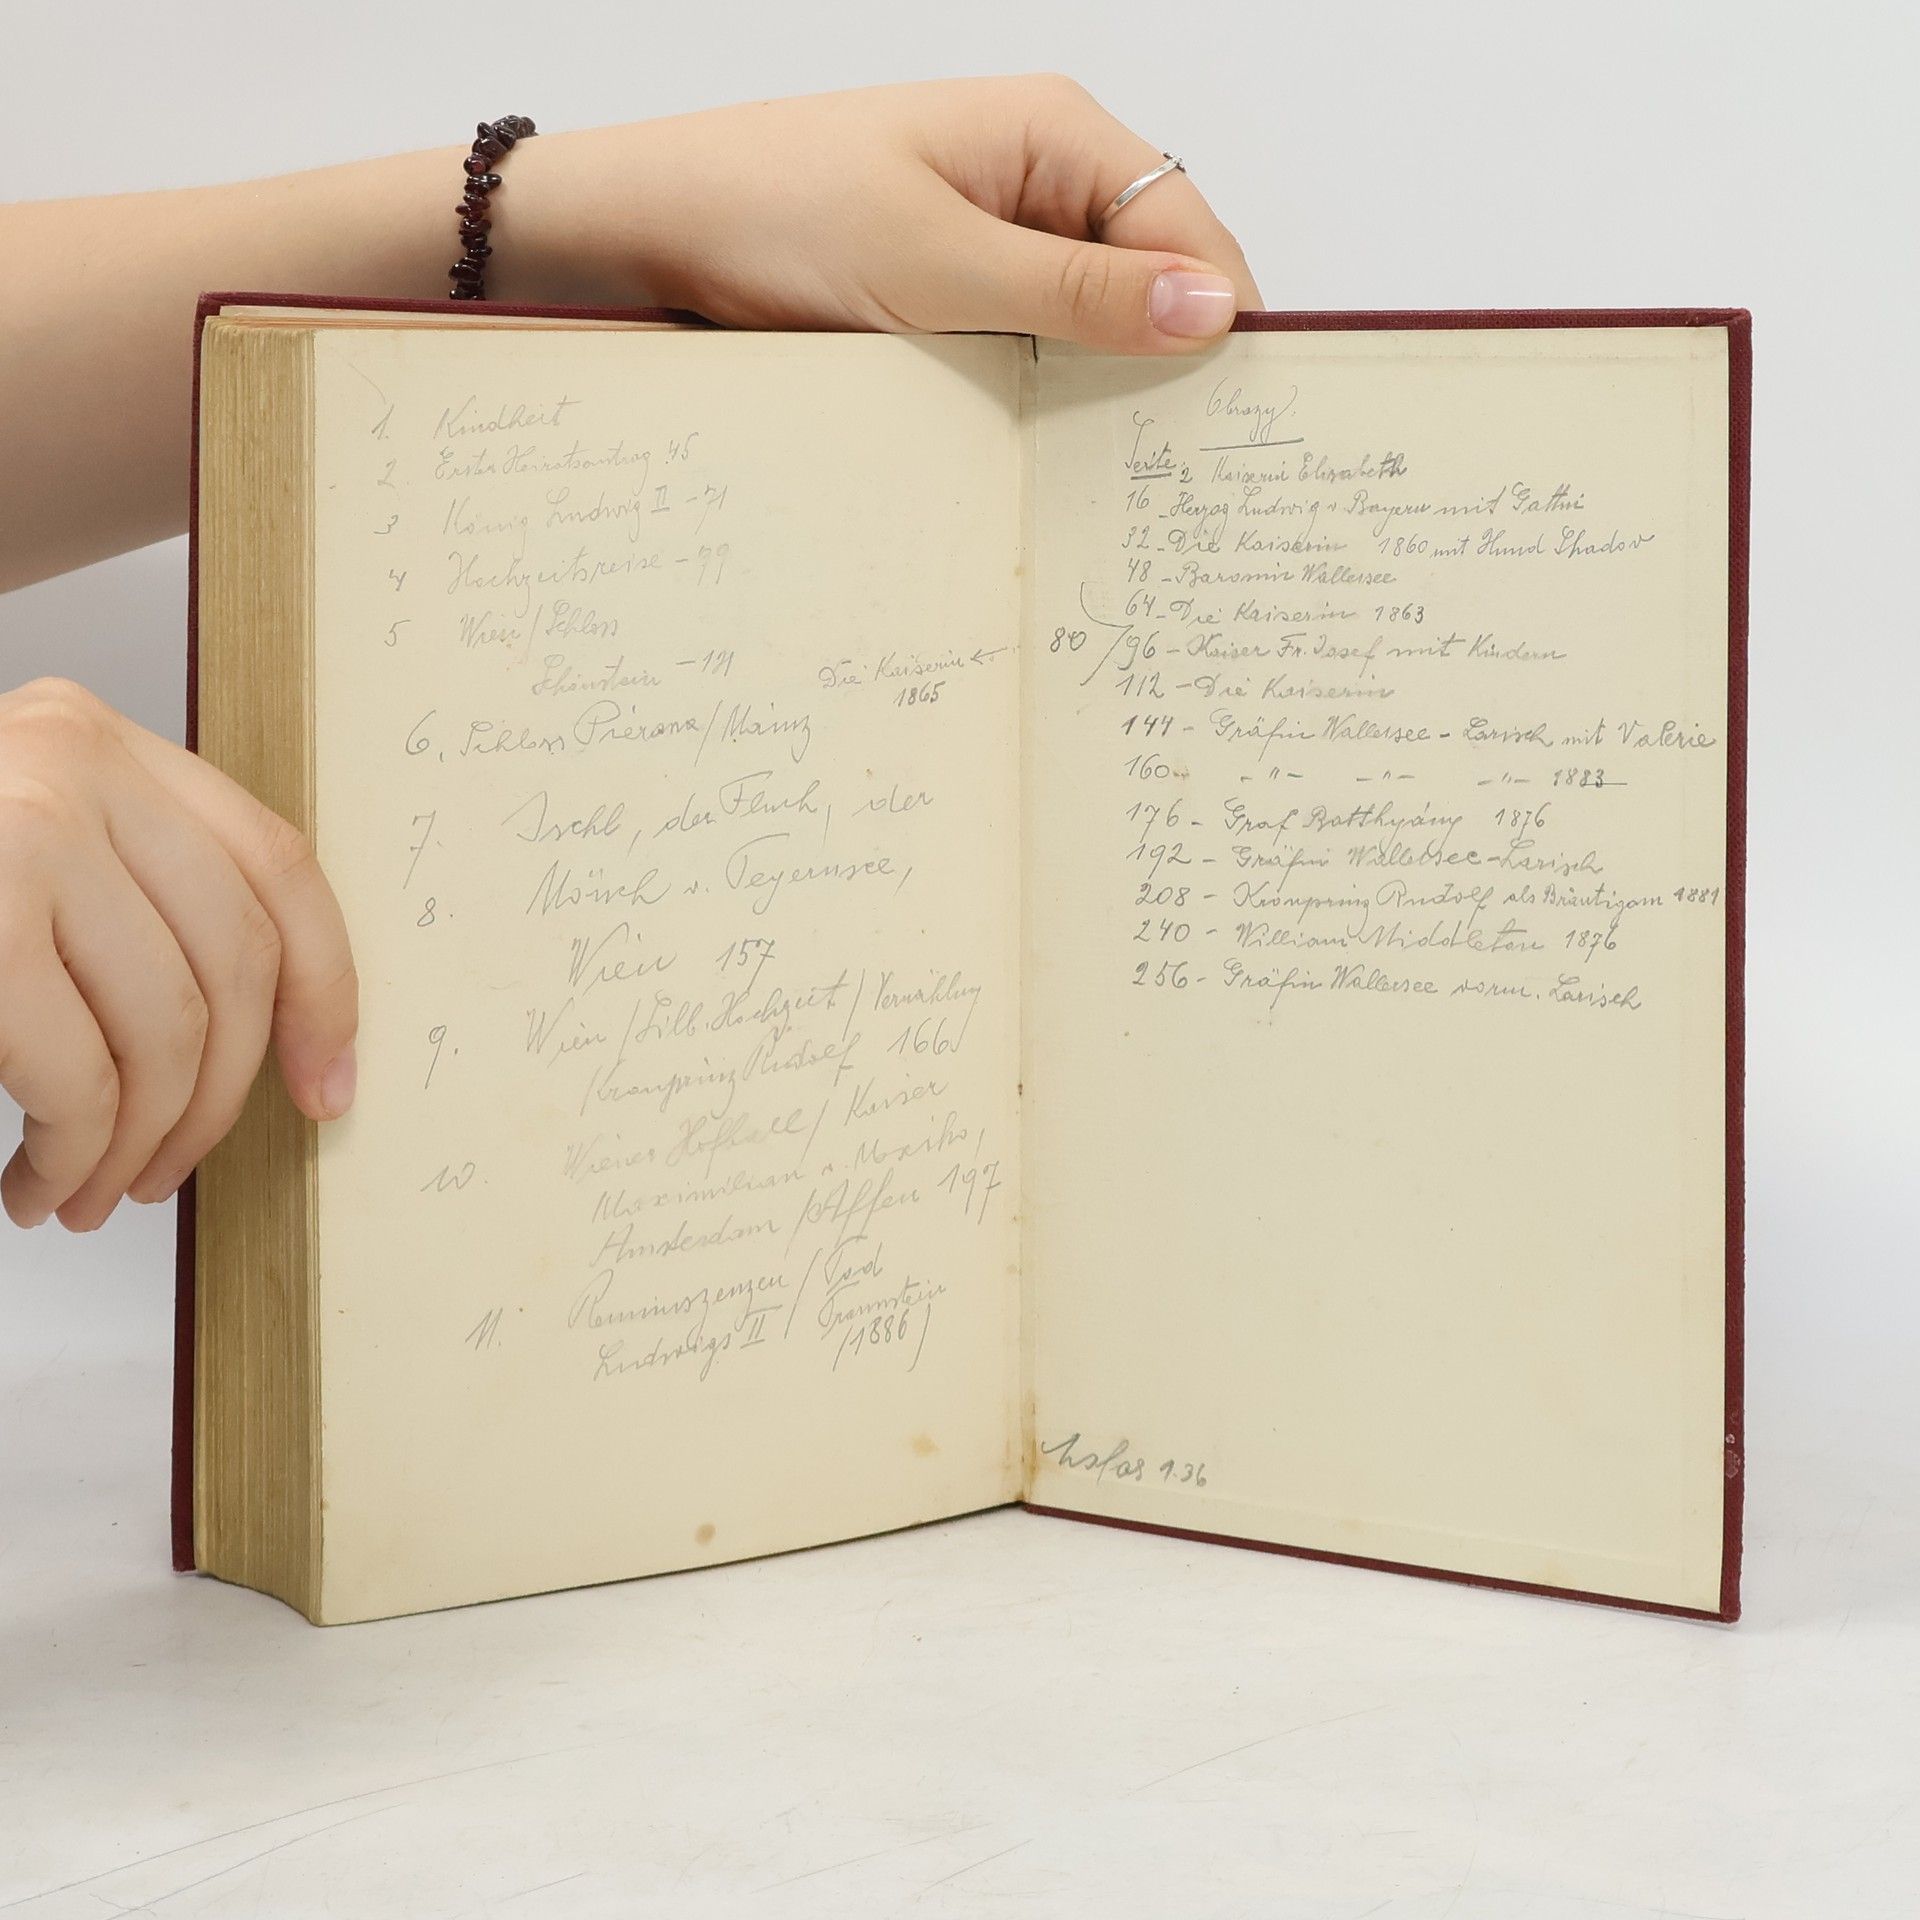 1. Kindheit
2. Erster Heiratsantrag 45
3 König Ludwig II - 71
4 Hochzeitsreise - 99
5 Wien / Schloss
Schönstein - 121
Die Kaiserin ←
1865
6. Schloss / Mainz
7. Ischl, der Fluch, der
8. Mönch v. Tegernsee,
Wien 157
9. Wien / Silb. Hochzeit / Vermählung
Kronprinz Rudolf 166
10. Wiener Hofball / Kaiser
Maximilian v. Mexiko,
Amsterdam / Affen 197
11. Reminiszenzen / Tod
Ludwigs II / Traunstein
(1886)
Obrazy.
Seite: 2 Kaiserin Elisabeth
16 - Herzog Ludwig v Bayern mit Gattin
32 - Die Kaiserin 1860 mit Hund Shadov
48 - Baronin Wallersee
64 - Die Kaiserin 1863
80 / 96 - Kaiser Fr. Josef mit Kindern
112 - Die Kaiserin
144 - Gräfin Wallersee - Larisch mit Valerie
160 - -"- -"- -"- 1883
176 - Graf Batthyány 1876
192 - Gräfin Wallersee-Larisch
208 - Kronprinz Rudolf als Bräutigam 1881
240 - William Middleton 1876
256 - Gräfin Wallersee vorm. Larisch
1.36